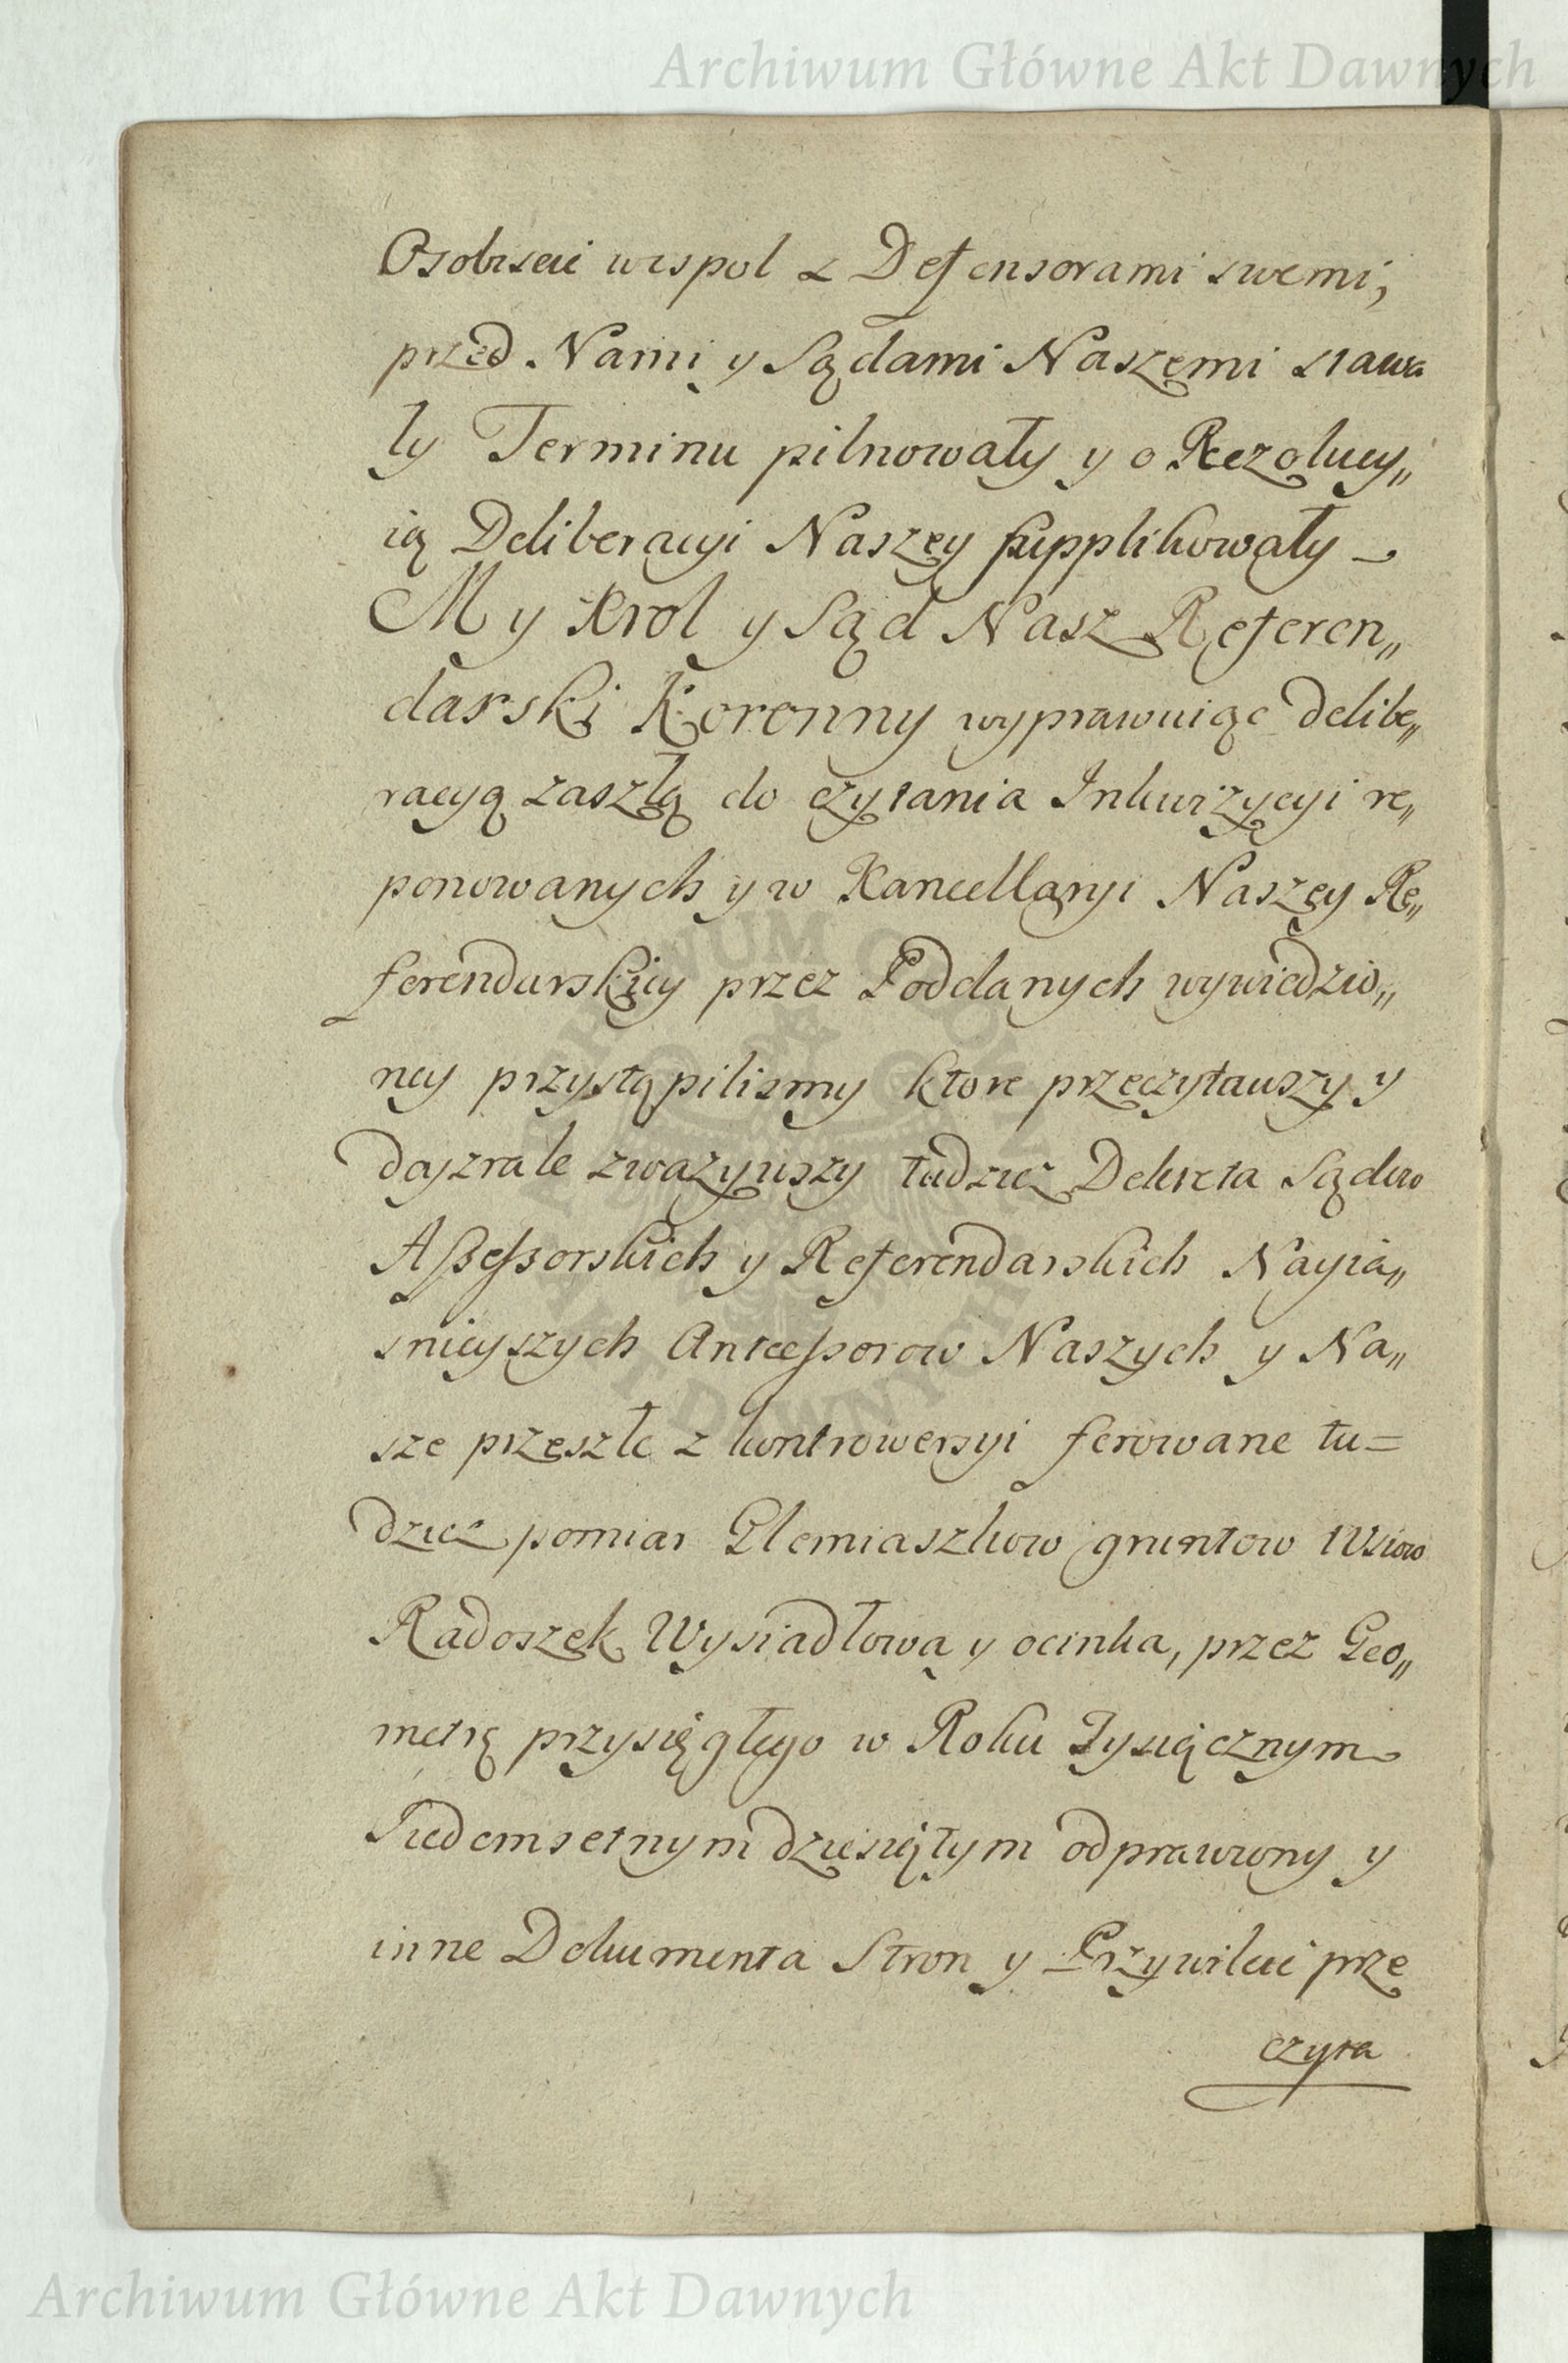 Archiwum Główne Akt Dawnych
Osobiscie wespol z Defensorami swemi,
przed Nami y Sądami Naszemi stawa
ły Terminu pilnowały y o Rezolucy„
ią Deliberacyi Naszey supplikowały –
My Krol y Sąd Nasz Referen„
darski Koronny wyprawuiąc delibe„
racyą zaszłą do czytania Inkwizycyi re„
ponowanych y w Kancellaryi Naszey Re„
ferendarskiey przez Poddanych wywiedzio„
ney przystąpilismy ktore przeczytawszy y
doyzrale zwazywszy tudziez Dekreta Sądow
Assessorskich y Referendarskich Nayia„
snieyszych Antecessorow Naszych y Na„
sze przeszłe z kontrowersyi ferowane tu=
dziez pomiar Glemiaszkow gruntow Wsiow
Radoszek Wysiadłowa y ocinka, przez Geo„
metrę przysięgłego w Roku Tysiącznym
Siedemsetnym dziesiątym odprawiony y
inne Dokumenta Stron y Przywileie prze
czyta
ARCHIWUM GŁÓWNE AKT DAWNYCH
Archiwum Główne Akt Dawnych